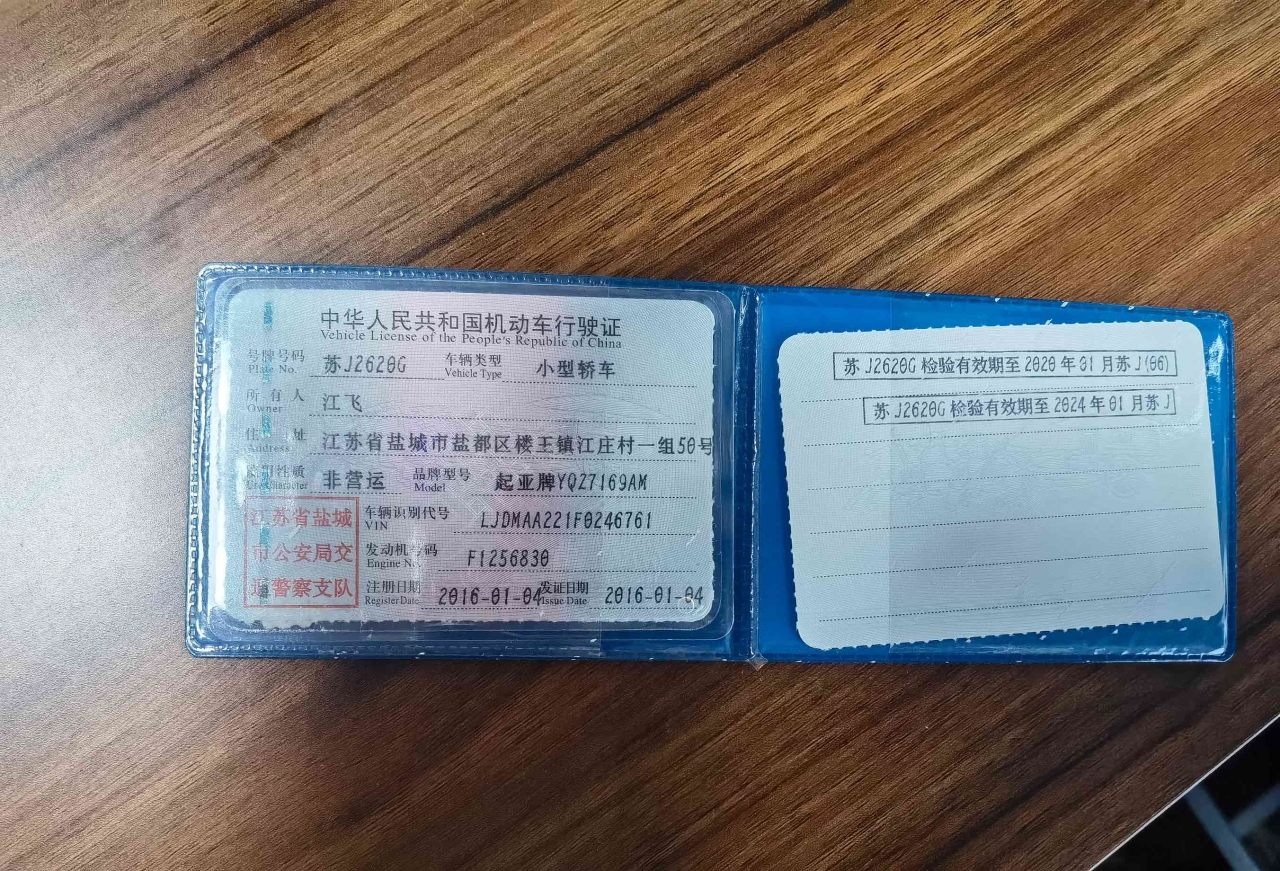 中华人民共和国机动车行驶证
Vehicle License of the People's Republic of China
号牌号码 苏J2620G 车辆类型 小型轿车
Plate No. Vehicle Type
所有人 江飞
Owner
住址 江苏省盐城市盐都区楼王镇江庄村一组50号
Address
使用性质 非营运 品牌型号 起亚牌YQZ7169AM
Use Character Model
江苏省盐城 车辆识别代号 LJDMAA221F0246761
VIN
市公安局交 发动机号码 F1256830
Engine No.
通警察支队 注册日期 2016-01-04 发证日期 2016-01-04
Register Date Issue Date
苏J2620G检验有效期至2020年01月苏J(06)
苏J2620G检验有效期至2024年01月苏J